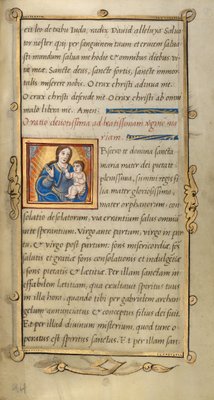 cit leo de tribu Iuda, radix Dauid alleluya. Salua
tor noster qui per sanguinem tuum et crucem salua
sti mundum salua me hodie & omnibus diebus vi
tæ meæ. Sancte deus, sancte fortis, sancte immor
talis miserere nobis. O crux christi adiuua me
O crux christi defende me. O crux christi ab omni
malo libera me. Amen.
Oratio deuotissima ad beatissimam virginẽ ma
riam.
Obsecro te domina sancta
maria mater dei pietate
plenissima, summi regis fi
lia mater gloriosissima,
mater orphanorum, con
solatio desolatorum, via errantium salus omniũ
in te sperantium. Virgo ante partum, virgo in par
tu, & virgo post partum: fons misericordiæ, fons
salutis et gratiæ fons consolationis et indulgẽtiæ
fons pietatis & lætitiæ. Per illam sanctam in
effabilem lætitiam, qua exultauit spiritus tuus
in illa hora, quando tibi per gabrielem archan
gelum annunciatus & conceptus filius dei fuit.
Et per illud diuinum misterium, quod tunc o
peratus est spiritus sanctus. Et per illam san